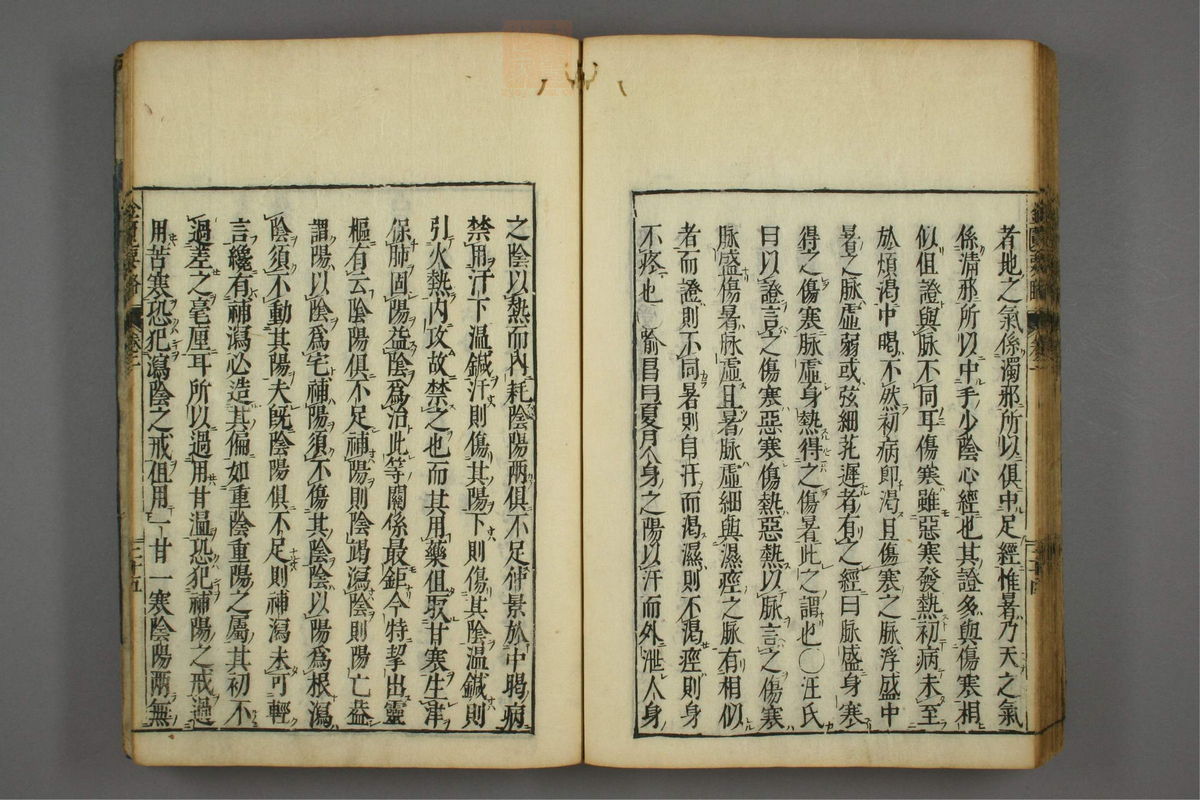 者地之氣係濁邪所以俱中足經惟暑乃天之氣
係清邪所以中手少陰心經也其證多與傷寒相
似但證與脉不同耳傷寒雖惡寒發熱初病未至
於煩渴中暍不然初病即渴且傷寒之脉浮盛中
暑之脉虛弱或弦細芤遲者有之經曰脉盛身寒
得之傷寒脉虛身熱得之傷暑此之謂也〇汪氏
曰以證言之傷寒惡寒傷熱惡熱以脉言之傷寒
脉盛傷暑脉虛且暑脉虛細與濕痙之脉有相似
者而證則不同暑則自汗而渴濕則不渴痙則身
不疼也〇喻昌曰夏月人身之陽以汗而外泄人身
之陰以熱而內耗陰陽兩俱不足仲景於中暍病
禁用汗下溫鍼汗則傷其陽下則傷其陰溫鍼則
引火熱內攻故禁之也而其用藥但取甘寒生津
保肺固陽益陰為治此等關係最鉅今特挈出靈
樞有云陰陽俱不足補陽則陰竭瀉陰則陽亡蓋
謂陽以陰為宅補陽須不傷其陰陰以陽為根瀉
陰須不動其陽夫既陰陽俱不足則補瀉未可輕
言纔有補瀉必造其偏如重陰重陽之屬其初不
過差之毫厘耳所以過用甘溫恐犯補陽之戒過
用苦寒恐犯瀉陰之戒但用一甘一寒陰陽兩無
金匱要略 卷二 二十五